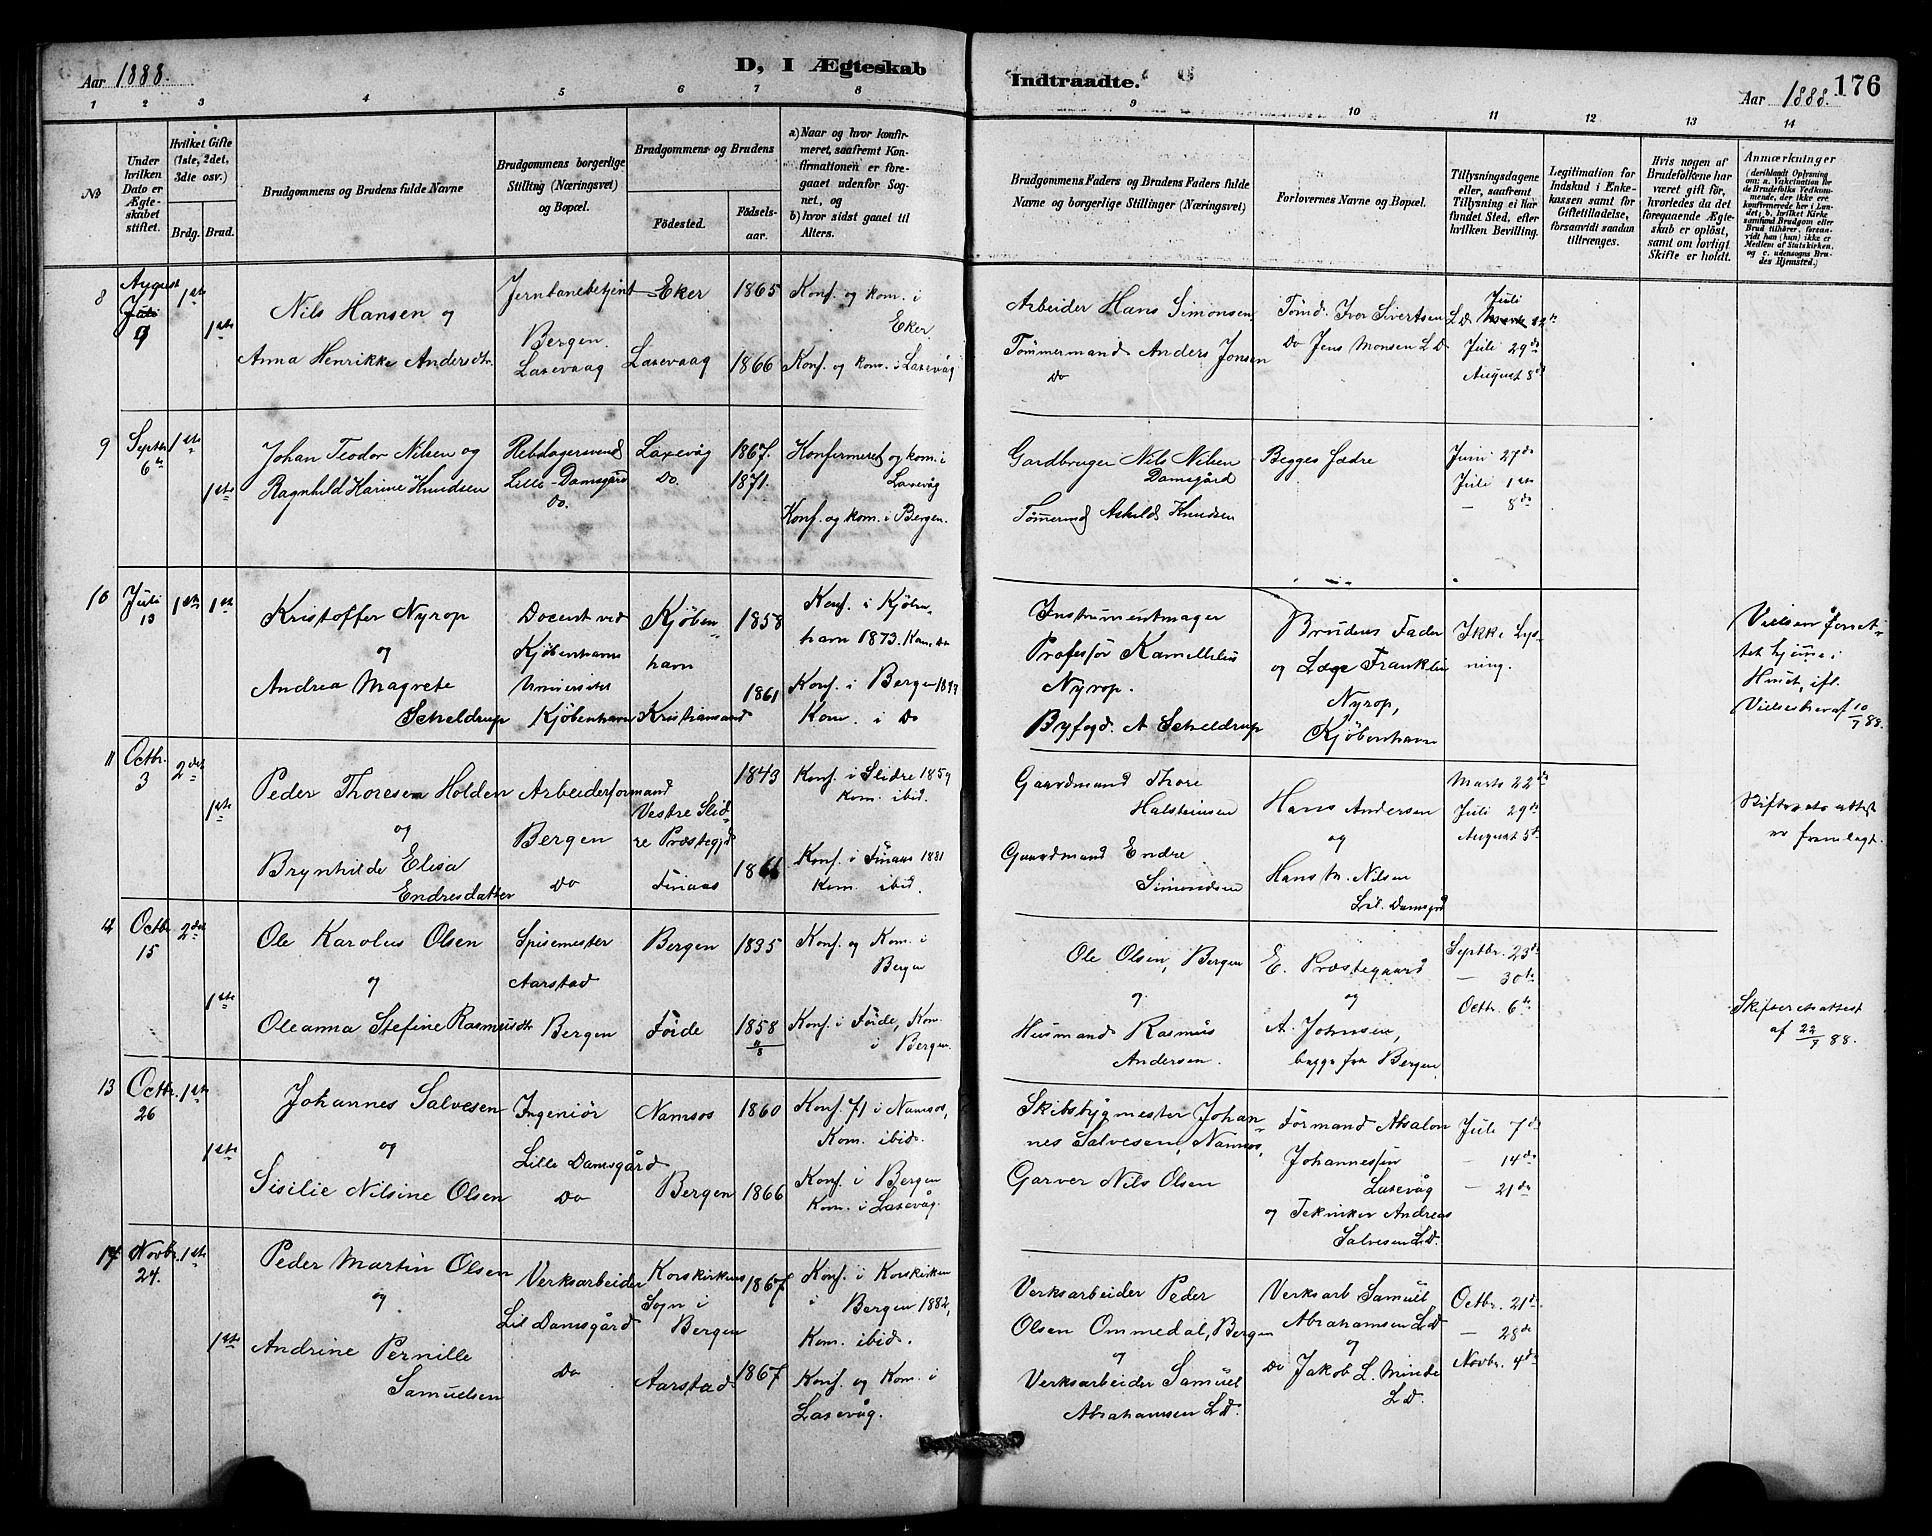 Aar 1888.
D, I Ægteskab
Indtraadte.
176
Aar 1888.
1 2 3 4 5 6 7 8 9 10 11 12 13 14
No
Under hvilken Dato er Ægteskabet stiftet.
Hvilket Gifte (1ste, 2det, 3die osv.)
Brdg. Brud.
Brudgommens og Brudens fulde Navne
Brudgommens borgerlige Stilling (Næringsvei) og Bopæl.
Brudgommens og Brudens
Fødested.
Fødsels-aar.
a) Naar og hvor konfirmeret, saafremt Konfirmationen er foregaaet udenfor Sognet, og
b) hvor sidst gaaet til Alters.
Brudgommens Faders og Brudens Faders fulde Navne og borgerlige Stillinger (Næringsvei)
Forlovernes Navne og Bopæl.
Tillysningsdagene eller, saafremt Tillysning ei har fundet Sted, efter hvilken Bevilling.
Legitimation for Indskud i Enkekassen samt for Giftetilladelse, forsaavidt saadan tiltrænges.
Hvis nogen af Brudefolkene har været gift før, hvorledes da det foregaaende Ægteskab er opløst, samt om lovligt Skifte er holdt.
Anmærkninger (deriblandt Oplysning om: a. Vakcination for de Brudefolks Vedkommende, der ikke ere konfirmerede her i Landet; b. hvilket Kirkesamfund Brudgom eller Brud tilhører, forsaavidt han (hun) ikke er Medlem af Statskirken, og c. udensogns Brudes Hjemsted.)
8
August
Juli
9
1ste
1ste
Nils Hansen og
Anna Henrikke Andersdtr.
Jernbanebetjent
Bergen.
Laxevaag
Eker
Laxevaag
1865
1866
Konf. og kom. i
Eker
Konf. og kom. i Laxevåg
Arbeider Hans Simonsen
Tømmermand Anders Jonsen
Do
Tømd. Ivor Sivertsen L D
Do Jens Monsen L D
Juli 22de
Juli 29de
August 8de
9
Septbr
6te
1ste
1ste
Johan Teodor Nilsen og
Ragnhild Karine Knudsen
Rebslagersvend
Lille-Damsgård
Do.
Laxevåg
Do.
1867.
1871.
Konfirmeret og kom. i
Laxevåg
Konf. og kom. i Bergen.
Gardbruger Nils Nilsen
Damsgård
Tømermd Askild Knudsen
Begges fædre
Juni 27de
Juli 1ste
— 8de
10
Juli
13
1ste
1ste
Kristoffer Nyrop
og
Andrea Magrete
Scheldrup
Docent ved
Kjøbenhavns
Universitet
Kjøbenhavn
Kjøben-
havn
Kristiansand
1858
1861
Konf. i Kjøben-
havn 1873. Kom. Do
Konf. i Bergen
Kom. i Do
Instrumentmager
Professor Kamellelius
Nyrop.
Byfogd. A Scheldrup
Brudens Fader
og Læge Franklin
Nyrop,
Kjøbenhavn
Ikke Lys-
ning.
Vielsen forret-
tet hjemme i
Huset, ifl.
Vielsesbrev af 10/7 88.
11
Octbr.
3
2det
1ste
Peder Thoresen Holden
og
Brynhilde Elisa
Endresdatter
Arbeiderformand
Bergen
Do
Vestre Slid-
re Præstegjd
Finaas
1843
1866
Konf. i Slidre 1859
Kom. ibid.
Konf. i Finaas 1881
Kom. ibid.
Gaardmand Thore
Halsteinsen
Gaardmand Endre
Simondsen
Hans Andersen
og
Hans M. Nilsen
Lil. Damsgrd
Marts 22de
Juli 29de
August 5te
Skifteretsattest
er fremlagt.
12
Octbr
15
2det
1ste
Ole Karolus Olsen
og
Oleanna Stefine Rasmusdtr
Spisemester
Aarstad
Bergen
Bergen
Förde
1835
1858
11/8
Konf. og Kom. i
Bergen
Konf. i Förde, Kom.
i Bergen.
Ole Olsen, Bergen
og
Husmand Rasmus
Andersen.
E. Præstegaard
og
A. Johnsen,
begge fra Bergen
Septbr. 23de
— 30te
Octbr. 6te
Skifteretsattest
af 22/9 88.
13
Octbr.
26
1ste
1ste
Johannes Salvesen
og
Sisilie Nilsine Olsen
Ingeniör
Lille Damsgård
Do
Namsos
Bergen
1860
1866
Konf. 71 i Namsos,
Kom. ibid.
Konf. i Bergen
Kom. i Laxevåg.
Skibsbygmester Johan-
nes Salvesen, Namsos,
Garver Nils Olsen
Formand Absalon
Johannessen
Laxevåg
og Tekniker Andreas
Salvesen L.D.
Juli 7de
— 14de
— 21de
14
Novbr.
24.
1ste
1ste
Peder Martin Olsen
og
Andrine Pernille
Samuelsen
Verksarbeider
Lil Damsgård
Do
Korskirkens
Sogn i
Bergen
Aarstad
1867
1867
Konf. i Korskirken
i Bergen 1882,
Kom. ibid.
Konf. og Kom. i
Laxevåg.
Verksarbeider Peder
Olsen Ommedal, Bergen
og
Verksarbeider Samuel
Abrahamsen L D.
Verksarb Samuel
Abrahamsen L D
og
Do Jakob L. Minde
L D.
Octbr. 21de
— 28de
Novbr. 4de